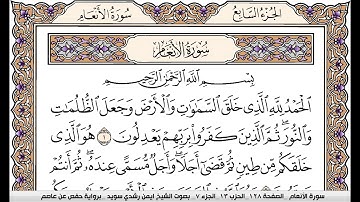 سُورَةُ الأَنْعَامِ الجُزْءُ السَّابِعُ
سُورَةُ الأَنْعَامِ
بِسْمِ اللَّهِ الرَّحْمَٰنِ الرَّحِيمِ
الْحَمْدُ لِلَّهِ الَّذِي خَلَقَ السَّمَٰوَٰتِ وَالْأَرْضَ وَجَعَلَ الظُّلُمَٰتِ
وَالنُّورَ ۖ ثُمَّ الَّذِينَ كَفَرُوا بِرَبِّهِمْ يَعْدِلُونَ ١ هُوَ الَّذِي
خَلَقَكُم مِّن طِينٍ ثُمَّ قَضَىٰ أَجَلًا ۖ وَأَجَلٌ مُّسَمًّى عِندَهُ ۖ ثُمَّ أَنتُمْ
سورة الأنعام الصفحة ١٢٨ الحزب ١٣ الجزء ٧ بصوت الشيخ أيمن رشدي سويد برواية حفص عن عاصم